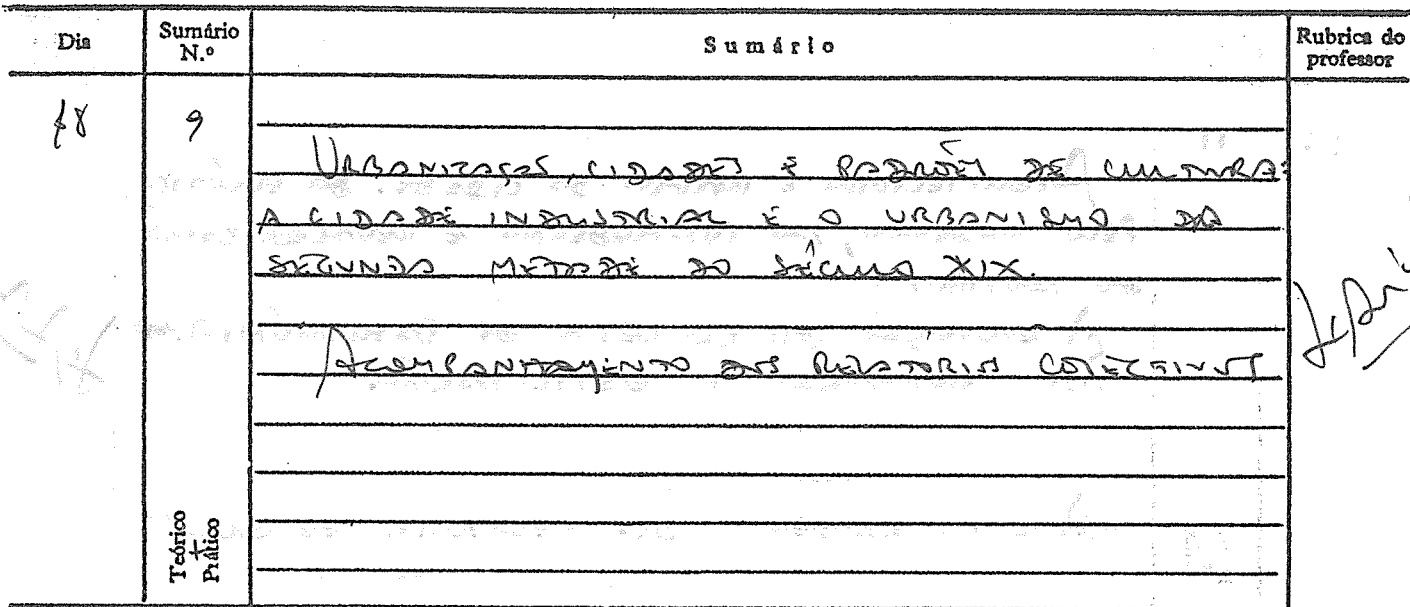 Dia
Sumário N.º
Sumário
Rubrica do professor
18
9
URBANIZAÇÃO, CIDADES E PADRÕES DE CULTURA:
A CIDADE INDUSTRIAL E O URBANISMO DA
SEGUNDA METADE DO SÉCULO XIX.
ACOMPANHAMENTO DOS RELATÓRIOS COLECTIVOS
Teórico
+
Prático